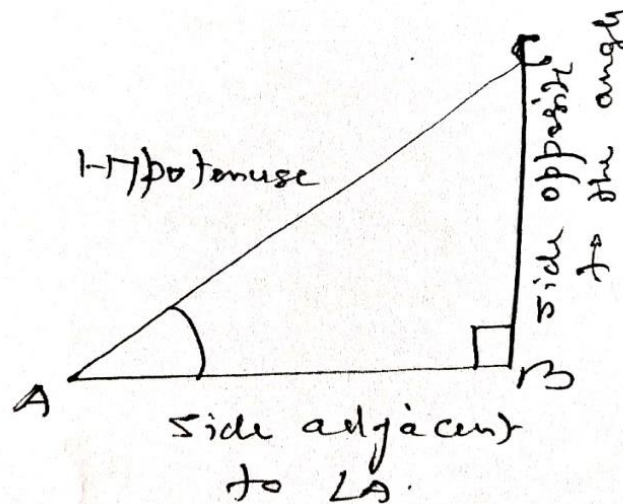 C
Hypotenuse
side opposite
to the angle
A
B
side adjacent
to ∠A.